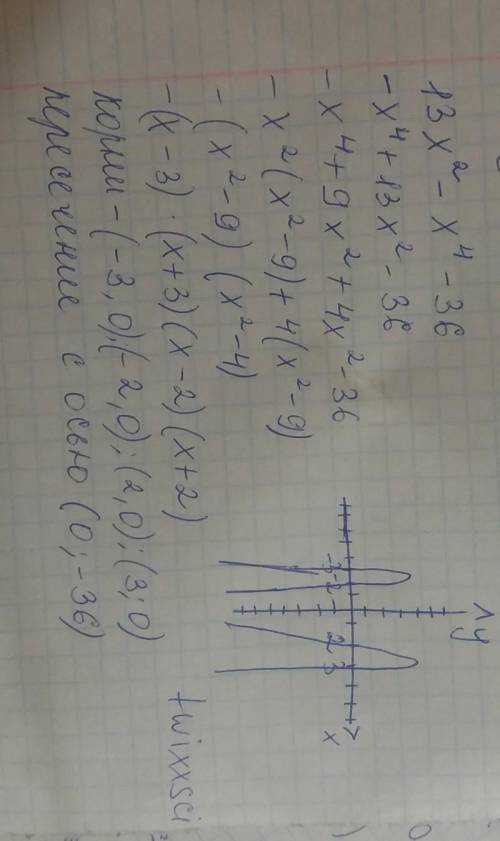 13x² - x⁴ - 36
-x⁴ + 13x² - 36
-x⁴ + 9x² + 4x² - 36
-x²(x² - 9) + 4(x² - 9)
-(x² - 9)(x² - 4)
-(x - 3)·(x + 3)(x - 2)(x + 2)
корни - (-3, 0);(-2,0);(2,0);(3;0)
пересечение с осью (0;-36)
y
-3 -2 2 3
x
twixxsci